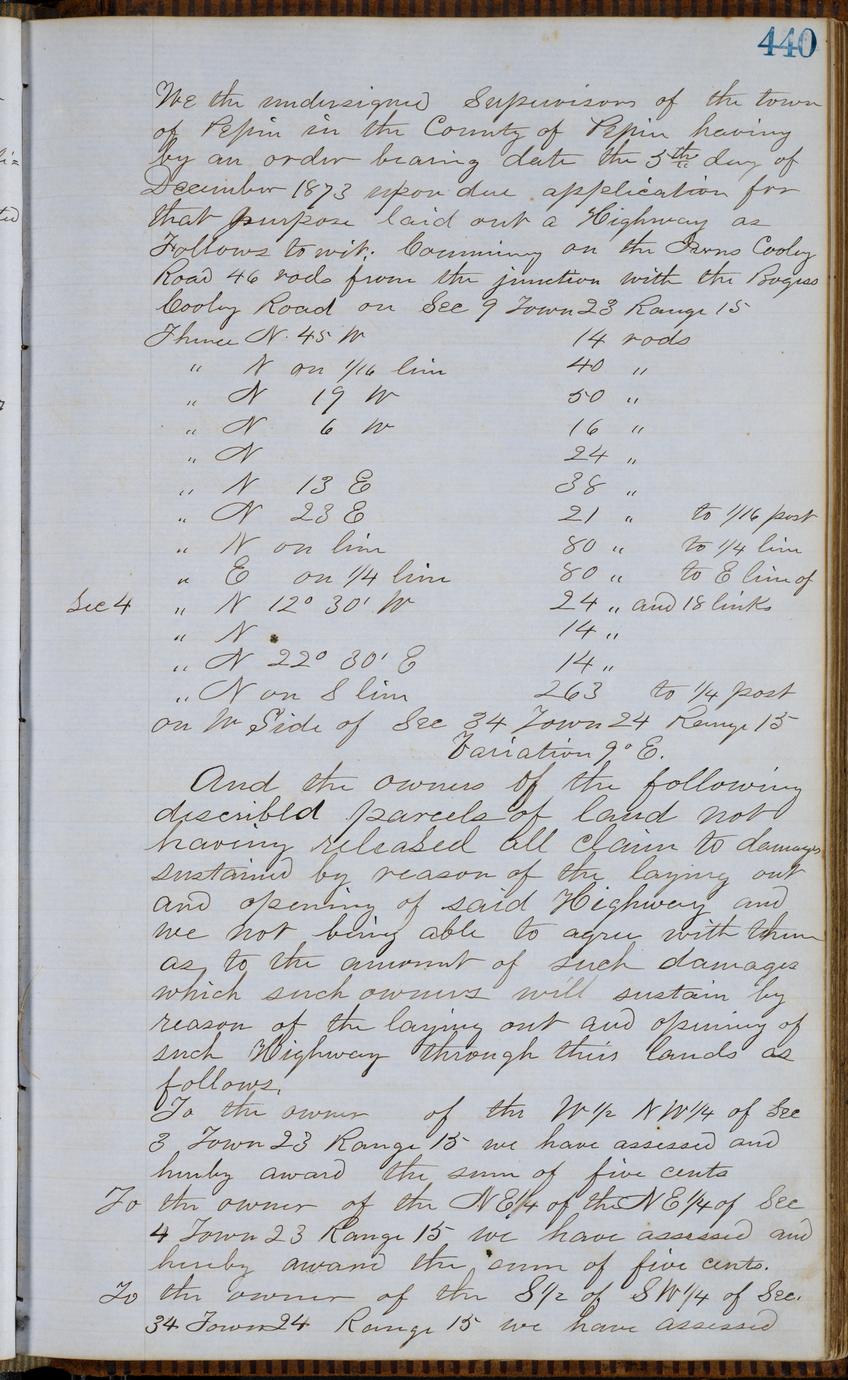 440
We the undersigned Supervisors of the town
of Pepin in the County of Pepin having
by an order bearing date the 5th day of
December 1873 upon due application for
that purpose laid out a Highway as
Follows to wit: Commincing on the Cooley
Road 46 rods from the junction with the Bogus
Cooley Road on Sec 9 Town 23 Range 15
Thence N. 45 W 14 rods
" N on 1/16 line 40 "
" N 19 W 50 "
" N 6 W 16 "
" N 24 "
" N 13 E 38 "
" N 23 E 21 " to 1/16 post
" N on line 80 " to 1/4 line
" E on 1/4 line 80 " to E line of
Sec 4 " N 12° 30' W 24 " and 18 links
" N 14 "
" N 22° 30' E 14 "
" N on S line 263 to 1/4 post
on W Side of Sec 34 Town 24 Range 15
Variation 9° E.
And the owners of the following
described parcels of land not
having released all claim to damages
sustained by reason of the laying out
and opening of said Highway and
we not being able to agree with them
as to the amount of such damages
which such owners will sustain by
reason of the laying out and opening of
such Highway through their lands as
follows.
To the owner of the W 1/2 NW 1/4 of Sec
3 Town 23 Range 15 we have assessed and
hereby award the sum of five cents
To the owner of the NE 1/4 of the NE 1/4 of Sec
4 Town 23 Range 15 we have assessed and
hereby award the sum of five cents.
To the owner of the S 1/2 of SW 1/4 of Sec.
34 Town 24 Range 15 we have assessed